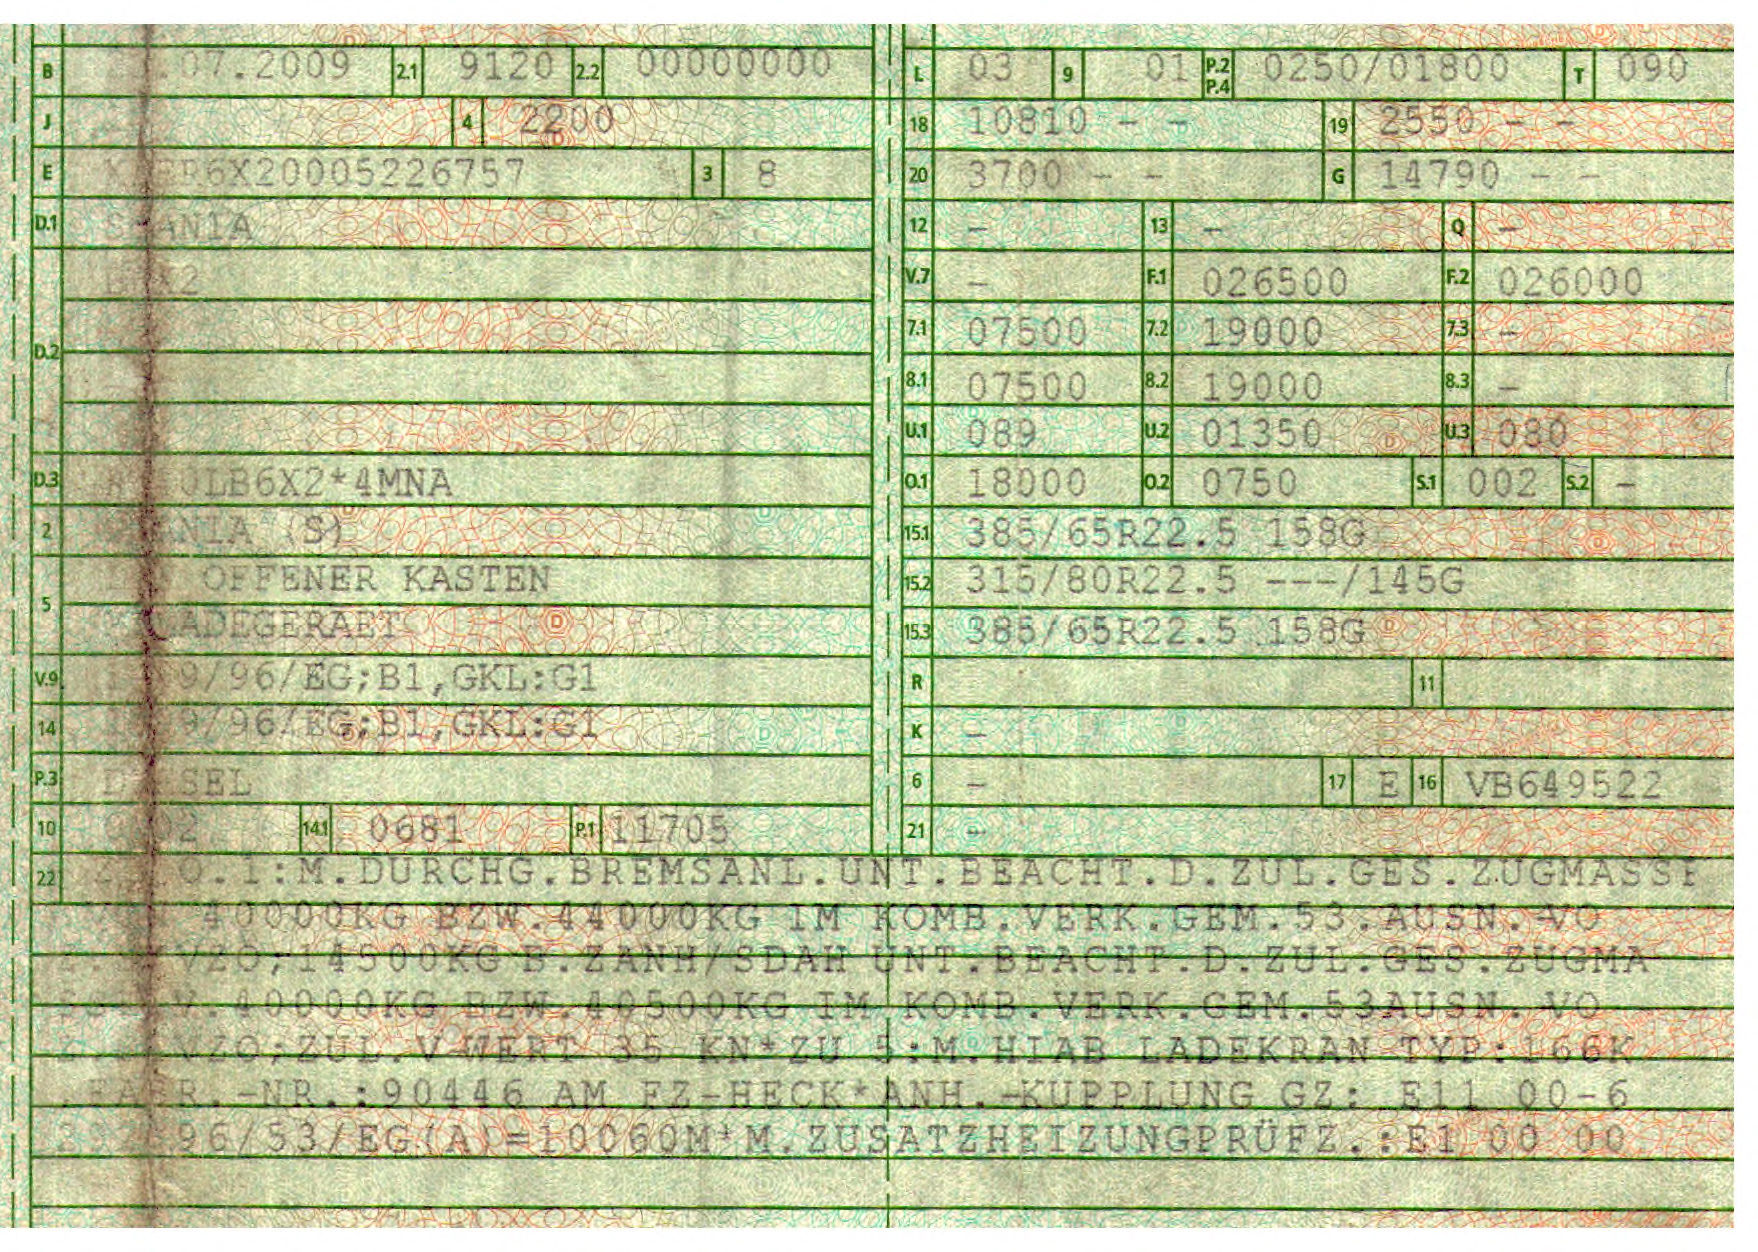 B .07.2009 2.1 9120 2.2 00000000
J 4 2200
E R6X20005226757 3 8
D.1 SCANIA
D.2
D.3 LB6X2*4MNA
2 SCANIA (S)
5 OFFENER KASTEN
LADEGERAET
V.9 9/96/EG;B1,GKL:G1
14 9/96/EG;B1,GKL:G1
P.3 DIESEL
10 0002 14.1 0681 P.1 11705
L 03 9 01 P.2 P.4 0250/01800 T 090
18 10810 - - 19 2550 - -
20 3700 - - G 14790 - -
12 - 13 - Q -
V.7 - F.1 026500 F.2 026000
7.1 07500 7.2 19000 7.3 -
8.1 07500 8.2 19000 8.3 -
U.1 089 U.2 01350 U.3 080
O.1 18000 O.2 0750 S.1 002 S.2 -
15.1 385/65R22.5 158G
15.2 315/80R22.5 ---/145G
15.3 385/65R22.5 158G
R 11
K -
6 - 17 E 16 VB649522
21 -
22 O.1:M.DURCHG.BREMSANL.UNT.BEACHT.D.ZUL.GES.ZUGMASSE
40000KG BZW.44000KG IM KOMB.VERK.GEM.53.AUSN.-VO
VZO;14500KG B.ZANH/SDAH UNT.BEACHT.D.ZUL.GES.ZUGMA
V.40000KG BZW.40500KG IM KOMB.VERK.GEM.53AUSN.-VO
VZO;ZUL.V-WERT 35 KN*ZU 5:M.HIAB LADEKRAN TYP:166K
FABR.-NR.:90446 AM FZ-HECK*ANH.-KUPPLUNG GZ: E11 00-6
96/53/EG(A)=10060M*M.ZUSATZHEIZUNGPRÜFZ.:E1 00 00